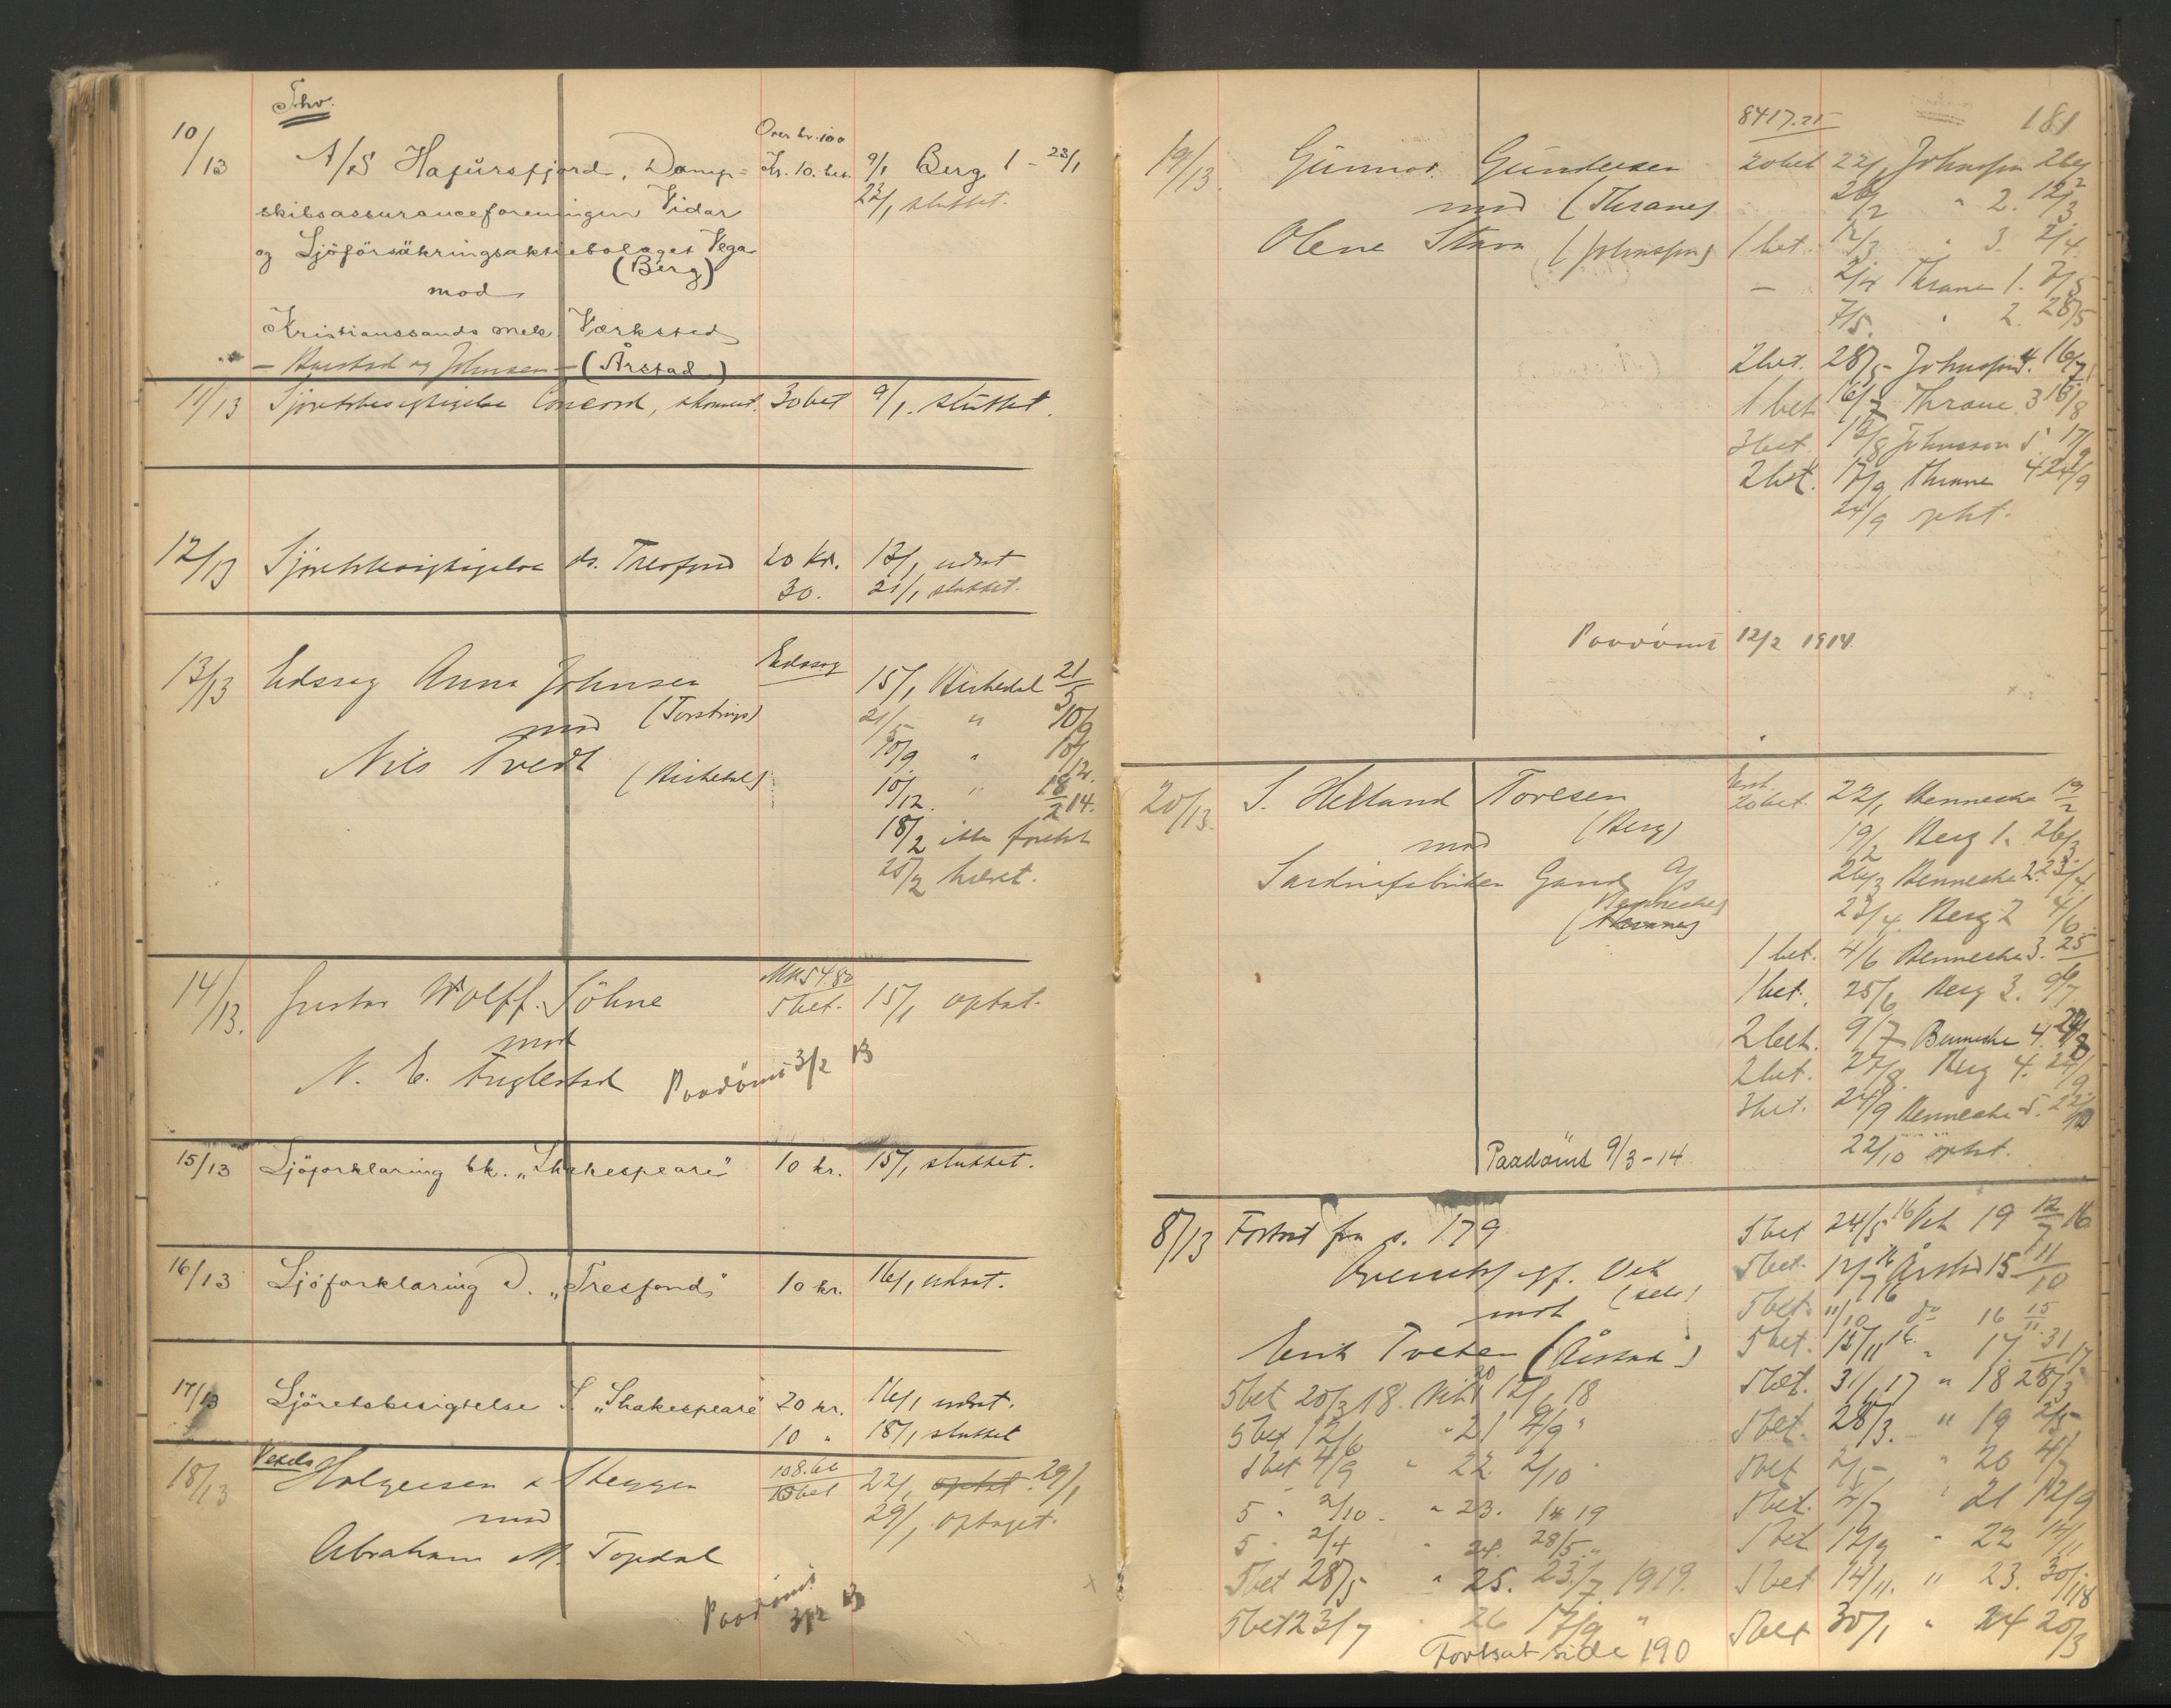 Thv.
10/13 A/S Hafursfjord, Damp= Over kr. 100 Kr. 10. bet. 9/1 Berg 1 - 23/1
skibsassuranceforeningen Vidar 23/1 sluttet.
og Sjöförsäkringsaktiebolaget Vega
(Berg)
mod
Kristianssands mek Værksted
(Årstad)
11/13 Concord, 30 bet 9/1. sluttet.
12/13 20 kr. 13/1 udsat
30. 21/1 sluttet.
13/13 Edssag Anna Johnsen Edssag 15/1 Birkedal 21/5
mod 21/5 " 10/9
Nils Tvedt (Birkedal) 10/9 " 10/12.
10/12. " 18/2 14.
18/2 ikke
25/2 hævet.
14/13. Gustav Wolff. Söhne 5 bet. 15/1 optat.
mod
N. E. Fuglestad Paadømt 3/2 13
15/13 Sjöforklaring bk. "Shakespeare" 10 kr. 15/1 sluttet.
16/13 Sjöforklaring D. "Tresfond" 10 kr. 16/1 udsat.
17/13 Sjöretsbesigtelse S. "Shakespeare" 20 kr. 16/1 udsat.
10 " 18/1 sluttet
18/13 Vexels Holgersen & Skeggen 108.66 22/1 optat. 29/1
mod 29/1 optaget.
Abraham M. Topdal
Paadømt 3/2 13
181
8417.25
19/13. Gunnar Gundersen 20 bet 22/1 Johnsson 26/2
mod (Thrane) 26/2 " 2. 12/3
Olene Stava (Johnsson) 1 bet. 12/3 " 3. 2/4.
— 2/4 Thrane 1. 7/5
7/5. " 2. 28/5
2 bet. 28/5 Johnsson 4. 16/7
1 bet 16/7 Thrane 3 13/8
3 bet. 13/8 Johnsson 5. 17/9
2 bet. 17/9 Thrane 4 24/9
24/9 optat.
Paadømt 12/2 1914.
20/13. S. Helland Toresen 20 bet. 22/1 Bennecke 19/2
(Berg) 19/2 Berg 1. 26/3
mod
Sardinfabriken Gand A/S 26/3 Bennecke 2. 23/4.
(Bennecke) 23/4. Berg 2 4/6
1 bet. 4/6 Bennecke 3. 25/6
1 bet. 25/6 Berg 3. 9/7.
2 bet. 9/7 Bennecke 4. 27/8
2 bet. 27/8. Berg 4. 24/9
3 bet. 24/9 Bennecke 5. 22/10
22/10 optat.
Paadømt 9/3-14
8/13 Fortsat fra s. 179 5 bet 24/5 16 Vik 19 12/7 16
5 bet. 12/7 16 Årstad 15 11/10
mod (selv) 5 bet. 11/10 16 do 16 15/11.
Tveten (Årstad) 5 bet. 15/11 16. " 17 31/1 17.
5 bet 20/3 18. Vik 20 12/6 18 5 bet. 31/1 17 " 18 28/3
5 bet 12/6 " 21 4/9 " 5 bet. 28/3. " 19 2/5
5 bet 4/9 " 22. 2/10 " 5 bet 2/5 " 20 4/7
5 " 2/10. " 23. 19 5 bet. 4/7 " 21 12/9
5 " 2/4 " 24. 28/5. " 5 bet 12/9 " 22 14/11
5 bet 28/5 " 25. 23/7. 1919. 5 bet 14/11. " 23. 30/1 18
5 bet 23/7 " 26 17/9 " 5 bet 30/1 " 24 20/3
Fortsat side 190